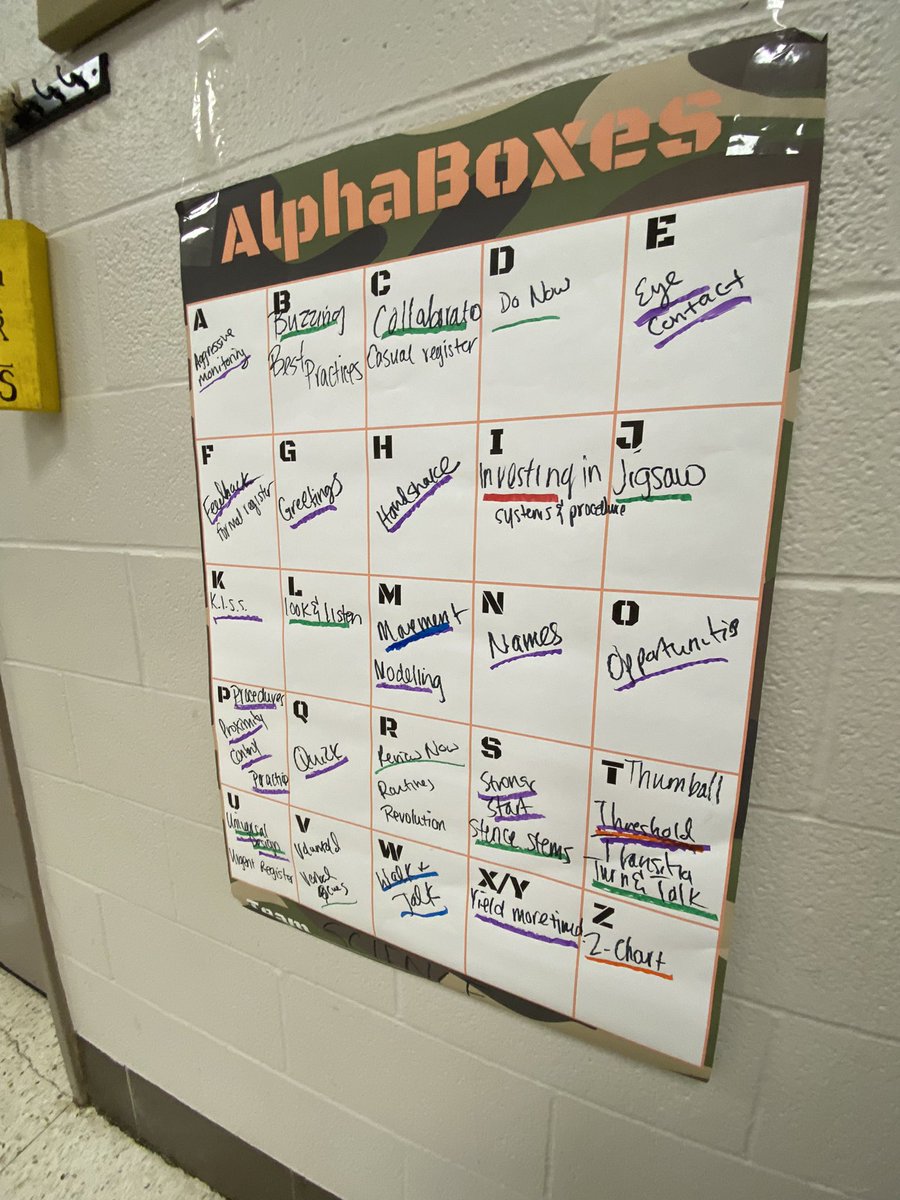 AlphaBoxes
A
Aggressive
monitoring
B
Buzzing
Best Practices
C
Collaborato
Casual register
D
Do Now
E
Eye
contact
F
Feedback
formal register
G
Greetings
H
Handshake
I
Investing in
systems & procedure
J
Jigsaw
K
K.I.S.S.
L
look & listen
M
Movement
Modelling
N
Names
O
Opportunities
P Procedures
Proximity
Control
Practice
Q
Quick
R
Review Now
Routines
Revolution
S
Strong
Start
Stence stems
T Thumball
Threshold
Turn & Talk
U
Universal
Design
Urgent Register
V
Verbal
W
Walk &
Talk
X/Y
Yield more time
Z
Z-Chart
Team SCIENCE
S